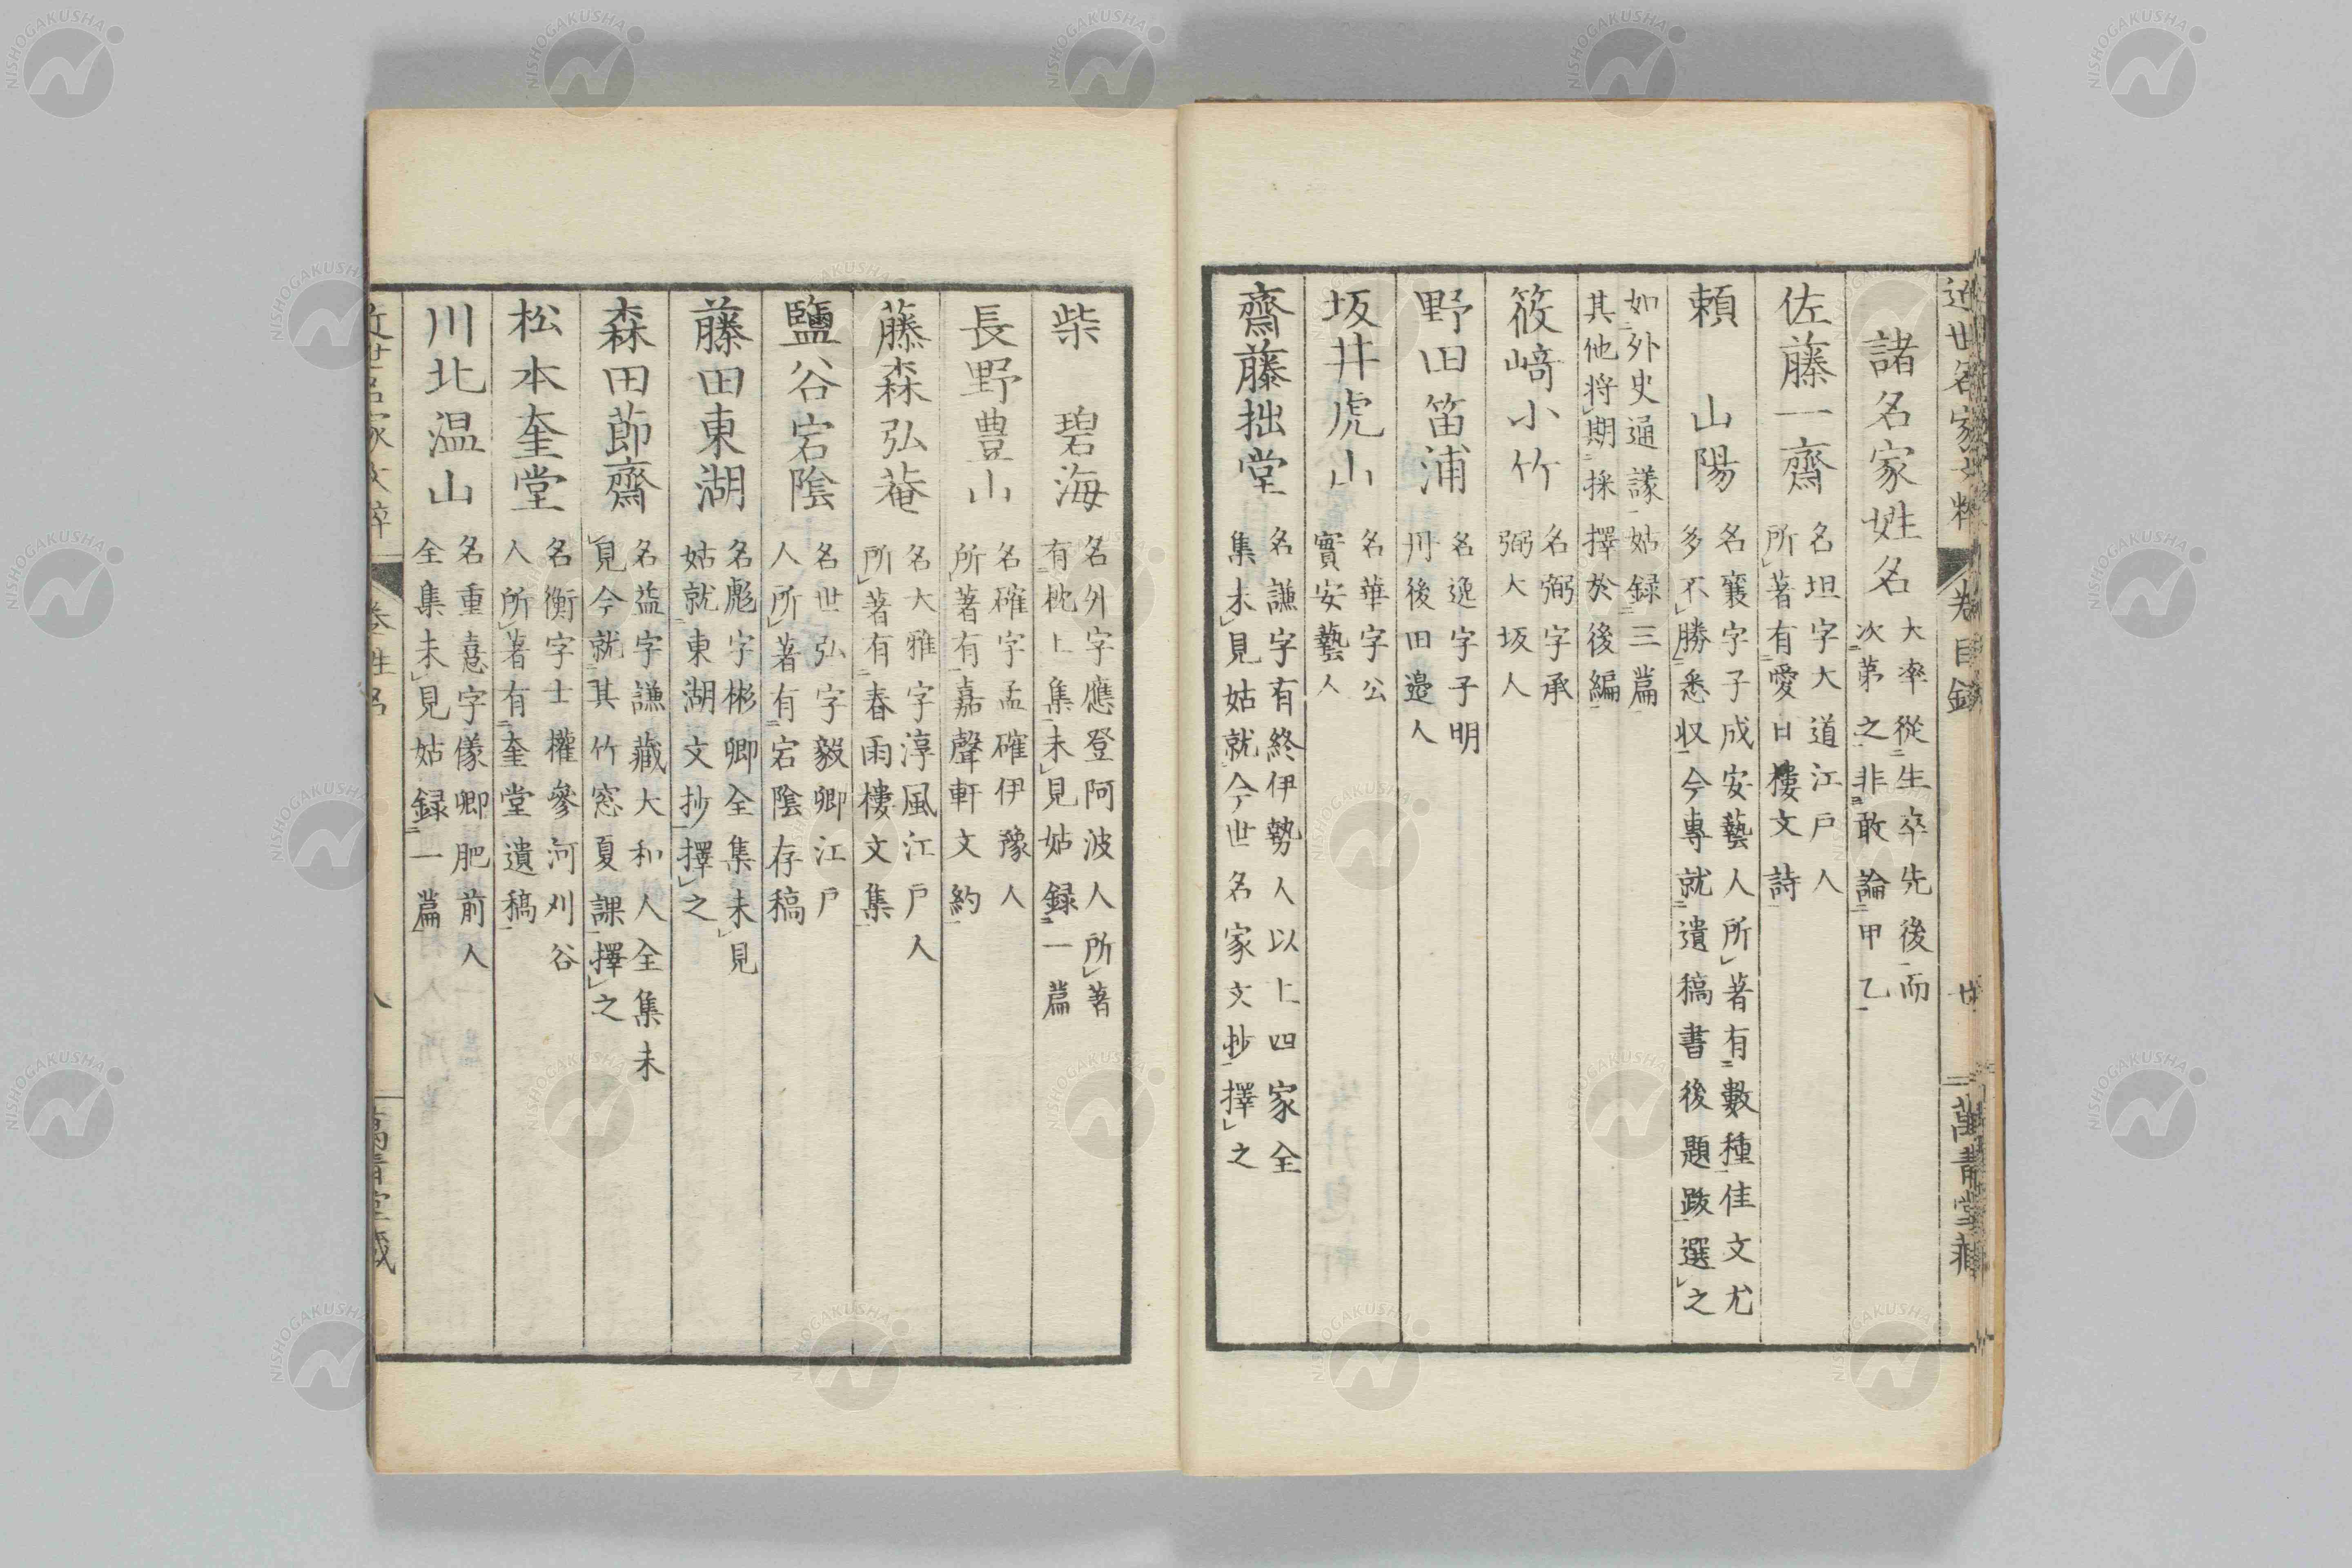 近世名家文粹 卷目錄 廿 萬青堂藏
諸名家姓名 大率從生卒先後而
次第之非敢論甲乙
佐藤一齋 名坦字大道江戸人
所著有愛日樓文詩
賴山陽 名襄字子成安藝人所著有數種佳文尤
多不勝悉収今專就遺稿書後題跋選之
如外史通議姑録三篇
其他将期採擇於後編
筱﨑小竹 名弼字承
弼大坂人
野田笛浦 名逸字子明
丹後田邉人
坂井虎山 名華字公
實安藝人
齋藤拙堂 名謙字有終伊勢人以上四家全
集未見姑就今世名家文抄擇之
柴碧海 名允字應登阿波人所著
有枕上集未見姑録一篇
長野豊山 名確字孟確伊豫人
所著有嘉聲軒文約
藤森弘菴 名大雅字淳風江戸人
所著有春雨樓文集
鹽谷宕陰 名世弘字毅卿江戸
人所著有宕陰存稿
藤田東湖 名彪字彬卿全集未見
姑就東湖文抄擇之
森田節齋 名益字謙藏大和人全集未
見今就其竹窓夏課擇之
松本奎堂 名衡字士權參河刈谷
人所著有奎堂遺稿
川北温山 名重憙字儀卿肥前人
全集未見姑録一篇
近世名家文粹 卷 姓名 八 萬青堂藏
NISHOGAKUSHA